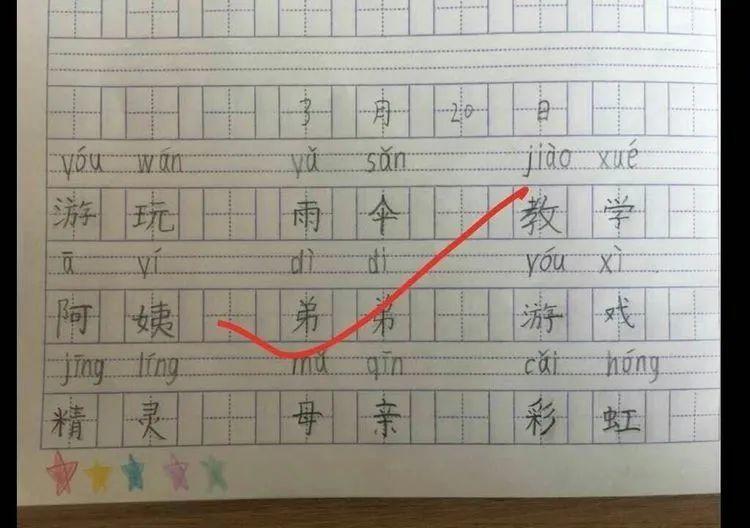 3月20日
yóu wán yǔ sǎn jiào xué
游玩 雨伞 教学
ā yí dì di yóu xì
阿姨 弟弟 游戏
jīng líng mǔ qīn cǎi hóng
精灵 母亲 彩虹